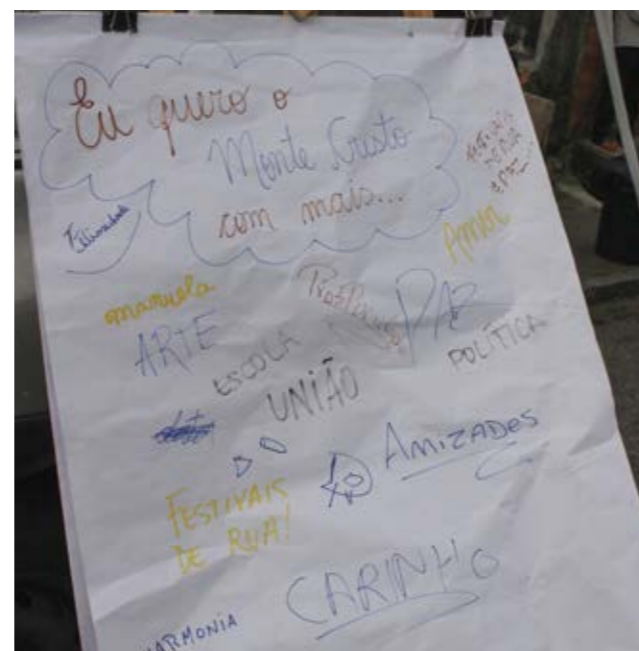 Eu quero o
Monte Cristo
com mais...
DE RUA
Felicidade
Amor
manuela
ARTE
PAZ
ESCOLA
POLÍTICA
UNIÃO
AMIZADES
FESTIVAIS
DE RUA!
CARINHO
HARMONIA